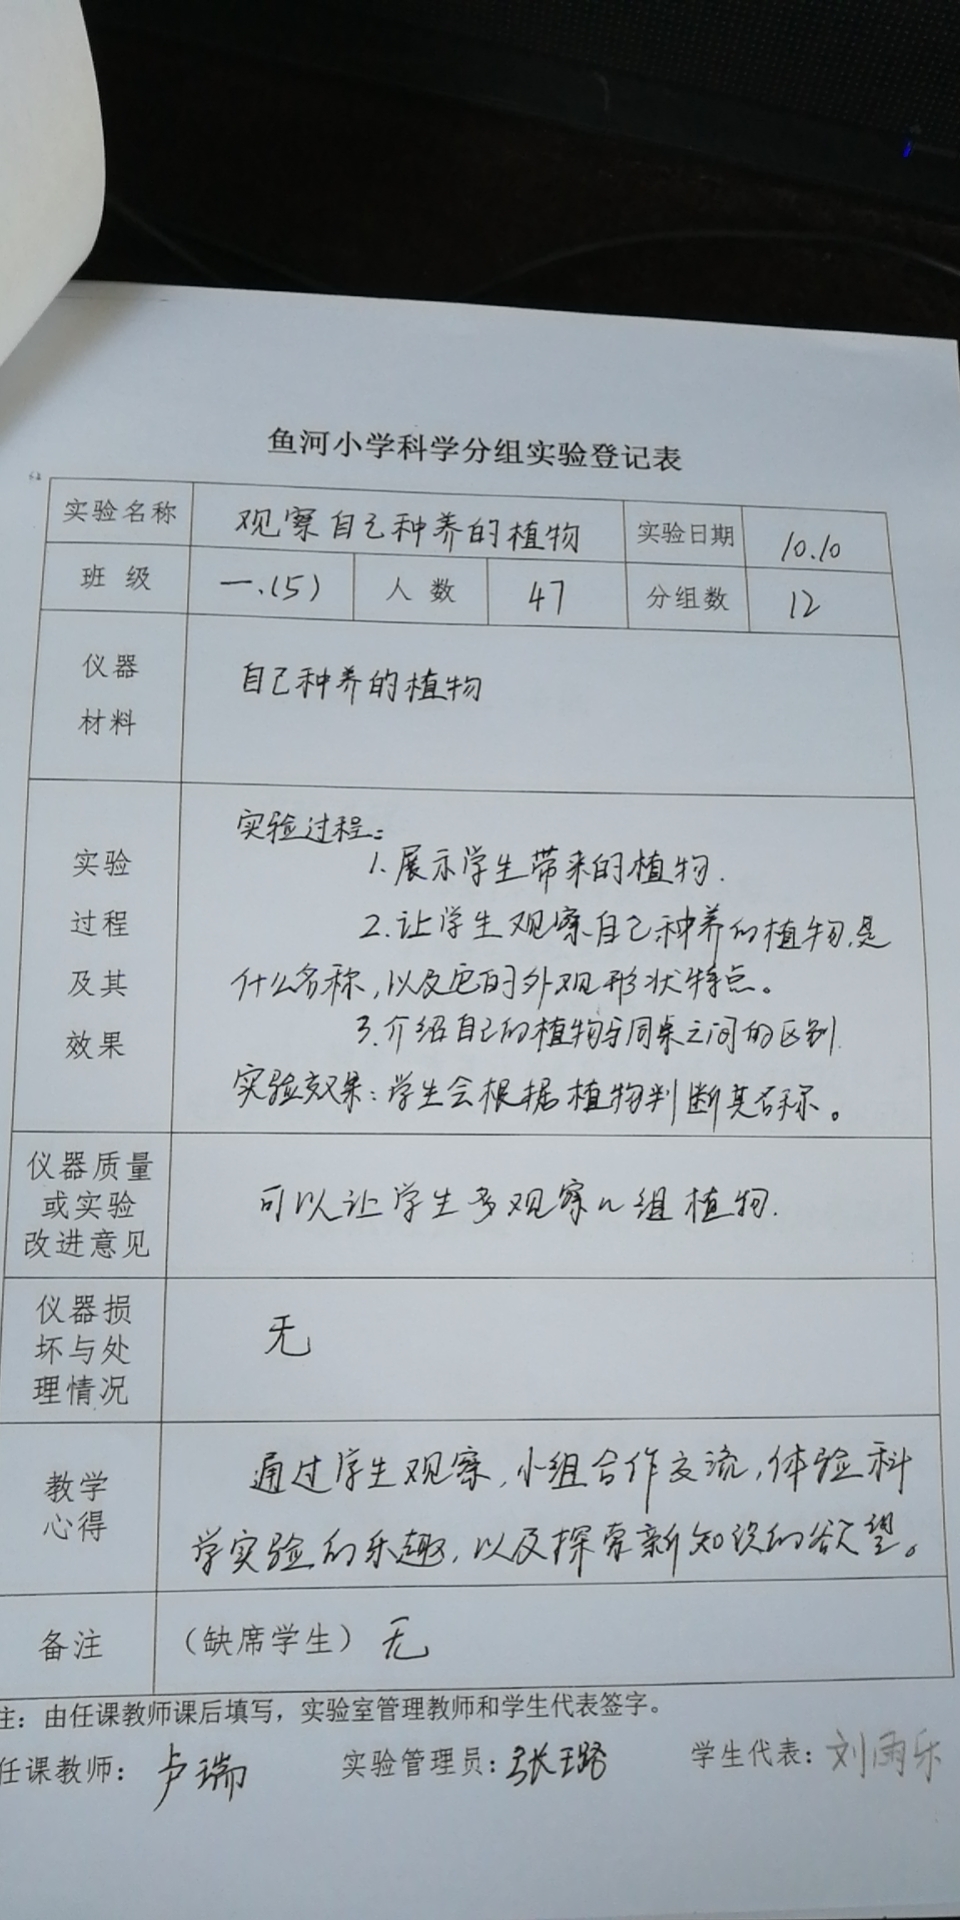 鱼河小学科学分组实验登记表
实验名称 观察自己种养的植物 实验日期 10.10
班 级 一.(5) 人 数 47 分组数 12
仪器
材料
自己种养的植物
实验
过程
及其
效果
实验过程:
1.展示学生带来的植物.
2.让学生观察自己种养的植物是
什么名称,以及它的外观形状特点。
3.介绍自己的植物与同桌之间的区别.
实验效果:学生会根据植物判断其名称。
仪器质量
或实验
改进意见
可以让学生多观察几组植物.
仪器损
坏与处
理情况
无
教学
心得
通过学生观察,小组合作交流,体验科
学实验的乐趣,以及探索新知识的欲望。
备注 (缺席学生) 无
注:由任课教师课后填写,实验室管理教师和学生代表签字。
任课教师: 卢瑞 实验管理员: 张璐 学生代表: 刘雨乐